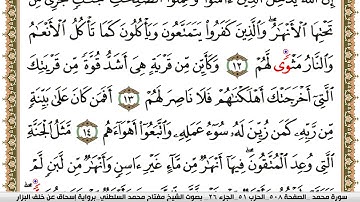 إِنَّ ٱللَّهَ يُدْخِلُ ٱلَّذِينَ ءَامَنُوا۟ وَعَمِلُوا۟ ٱلصَّٰلِحَٰتِ جَنَّٰتٍ تَجْرِى مِن
تَحْتِهَا ٱلْأَنْهَٰرُ وَٱلَّذِينَ كَفَرُوا۟ يَتَمَتَّعُونَ وَيَأْكُلُونَ كَمَا تَأْكُلُ ٱلْأَنْعَٰمُ
وَٱلنَّارُ مَثْوًى لَّهُمْ ١٢ وَكَأَيِّن مِّن قَرْيَةٍ هِىَ أَشَدُّ قُوَّةً مِّن قَرْيَتِكَ
ٱلَّتِىٓ أَخْرَجَتْكَ أَهْلَكْنَٰهُمْ فَلَا نَاصِرَ لَهُمْ ١٣ أَفَمَن كَانَ عَلَىٰ بَيِّنَةٍ
مِّن رَّبِّهِۦ كَمَن زُيِّنَ لَهُۥ سُوٓءُ عَمَلِهِۦ وَٱتَّبَعُوٓا۟ أَهْوَآءَهُم ١٤ مَّثَلُ ٱلْجَنَّةِ
ٱلَّتِى وُعِدَ ٱلْمُتَّقُونَ فِيهَآ أَنْهَٰرٌ مِّن مَّآءٍ غَيْرِ ءَاسِنٍ وَأَنْهَٰرٌ مِّن لَّبَنٍ لَّمْ
سورة محمد الصفحة ٥٠٨ الحزب ٥١ الجزء ٢٦ بصوت الشيخ مفتاح محمد السلطني برواية إسحاق عن خلف البزار